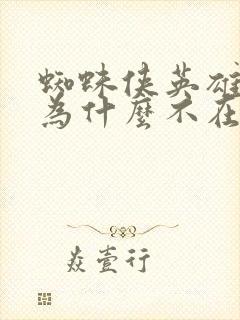 蜘蛛俠英雄
為什麼不在
焱壹行